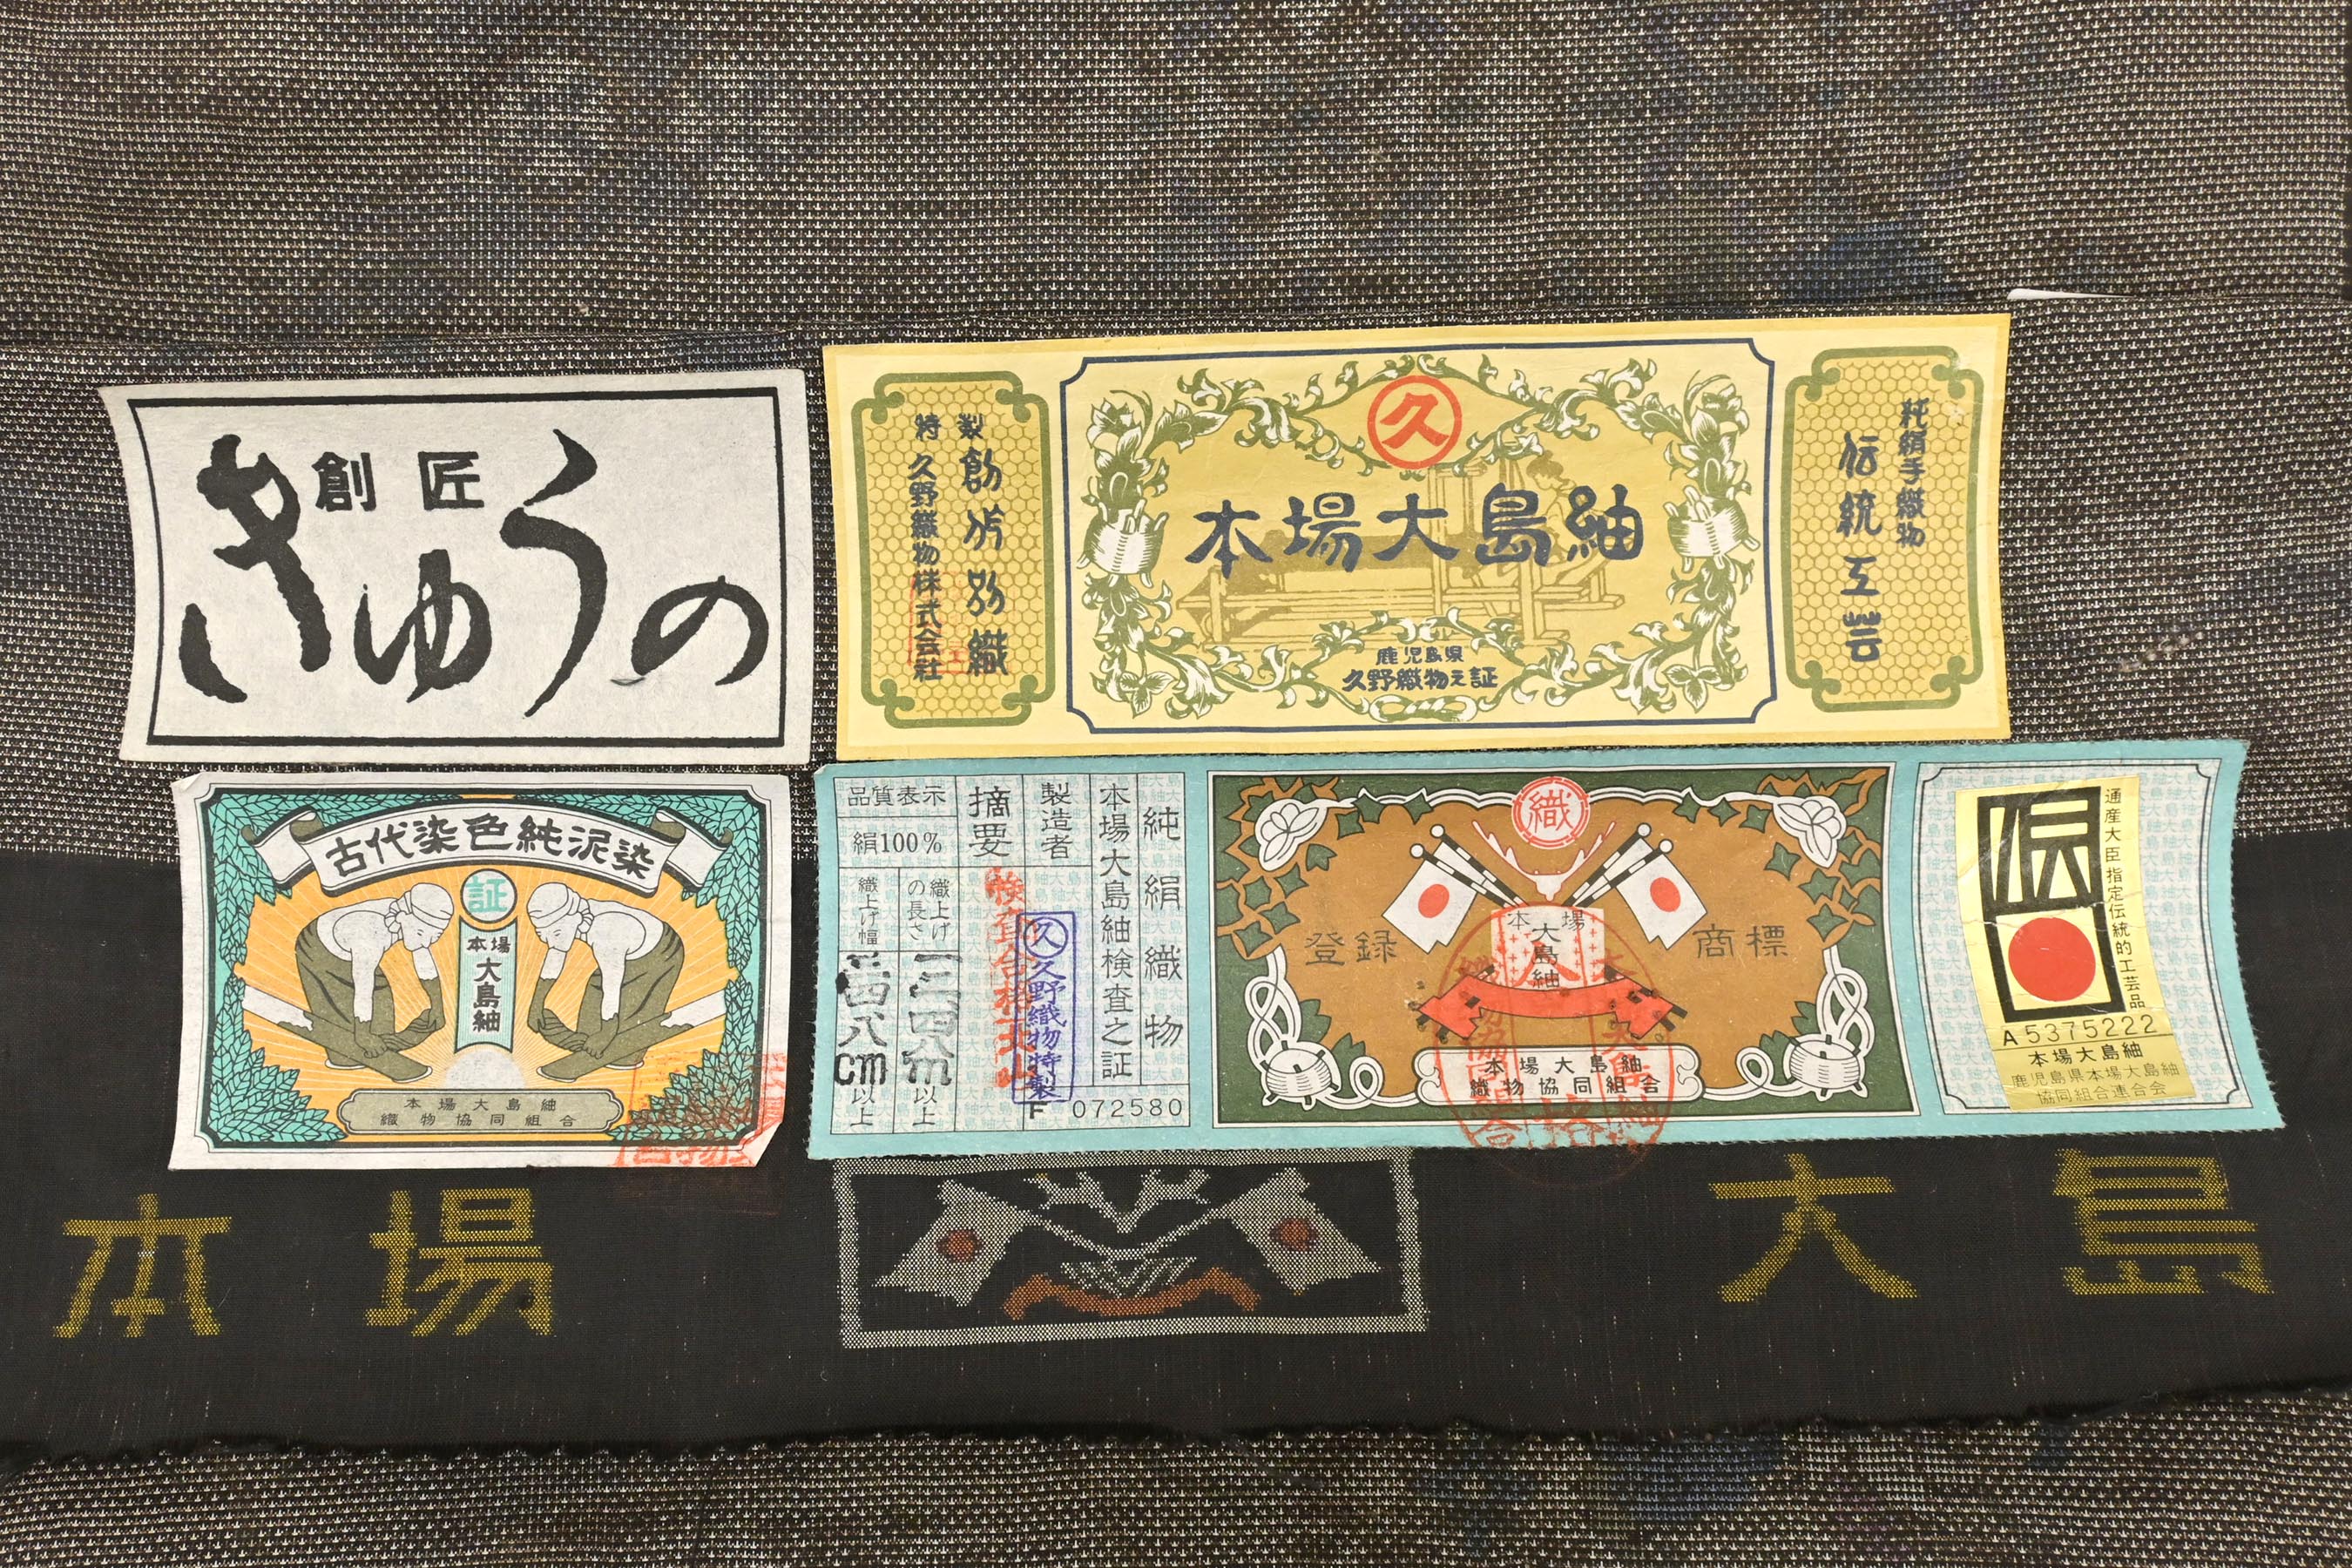 創匠
きゅうの
久
本場大島紬
鹿児島県
久野織物之証
純絹手織物
伝統工芸
特製
久野織物株式会社
古代染色純泥染
証
本場
大島紬
本場大島紬
織物協同組合
純絹織物
本場大島紬検査之証
製造者
久
久野織物特製
摘要
検査合格
品質表示
絹100%
織上げの長さ
m以上
織上げ幅
cm以上
F 072580
織
登録
商標
本場
大島紬
本場大島紬
織物協同組合
伝
通産大臣指定伝統的工芸品
A5375222
本場大島紬
鹿児島県本場大島紬
協同組合連合会
本場
大島